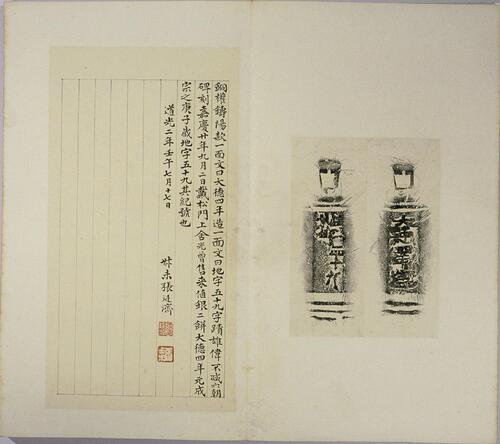 大德四年造
地字五十九
銅權鑄陽款一面文曰大德四年造一面文曰地字五十九字蹟雄偉不減六朝
碑刻嘉慶廿年九月二日戴松門上舍光曾售來值銀二餅大德四年元成
宗之庚子歲地字五十九其紀號也
道光二年壬午七月十七日
叔未張廷濟